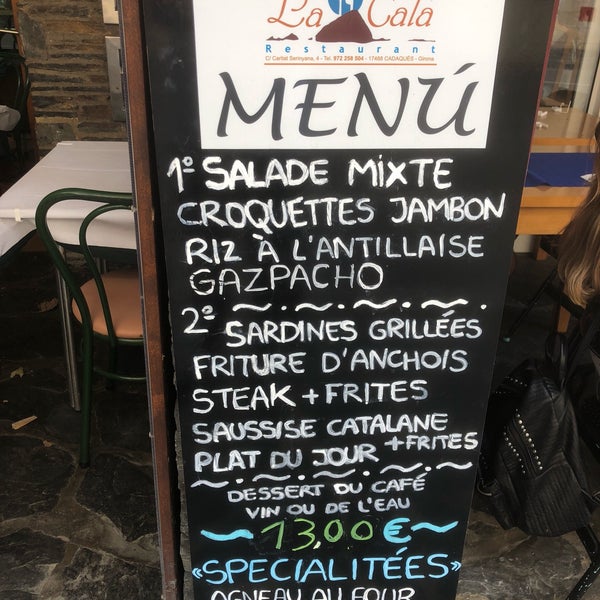 La Cala
Restaurant
C/ Caritat Serinyana, 4 - Tel. 972 258 504 - 17488 CADAQUÉS - Girona
MENÚ
1º SALADE MIXTE
CROQUETTES JAMBON
RIZ À L'ANTILLAISE
GAZPACHO
2º SARDINES GRILLÉES
FRITURE D'ANCHOIS
STEAK + FRITES
SAUSSISE CATALANE
+ FRITES
PLAT DU JOUR
DESSERT OU CAFÉ
VIN OU DE L'EAU
~ 13,00 € ~
«SPECIALITÉES»
AGNEAU AU FOUR